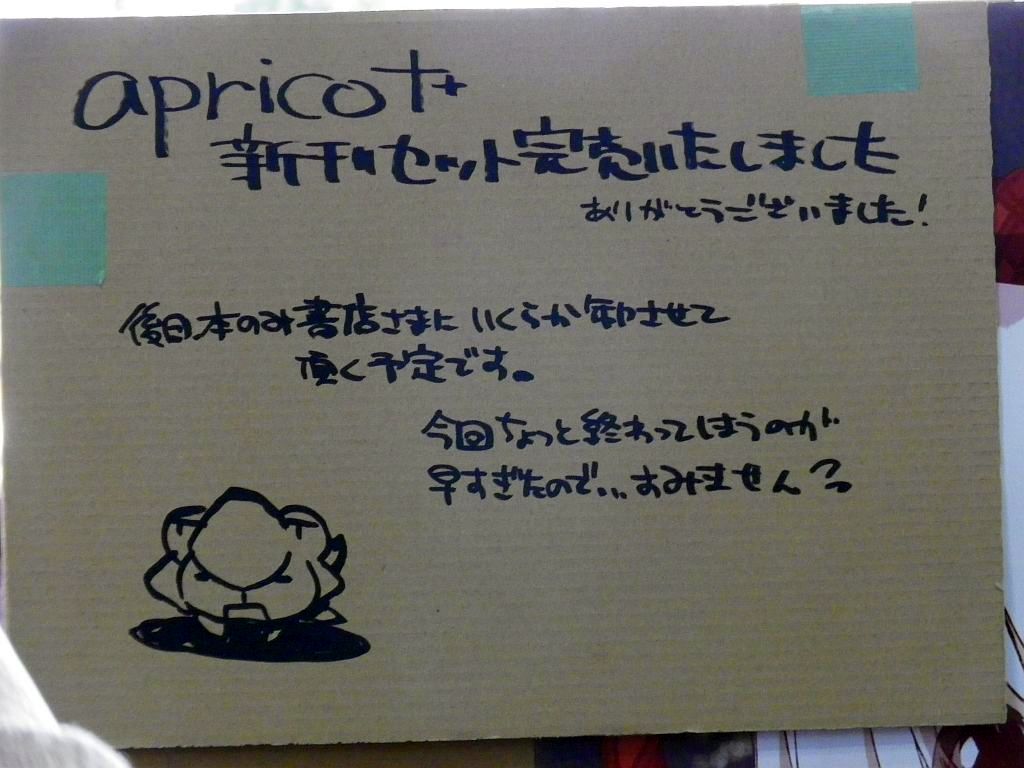 apricot+
新刊セット完売いたしました
ありがとうございました!
後日、本のみ書店さまにいくらか卸させて
頂く予定です。
今回ちょっと終わってしまうのが
早すぎたので…すみません